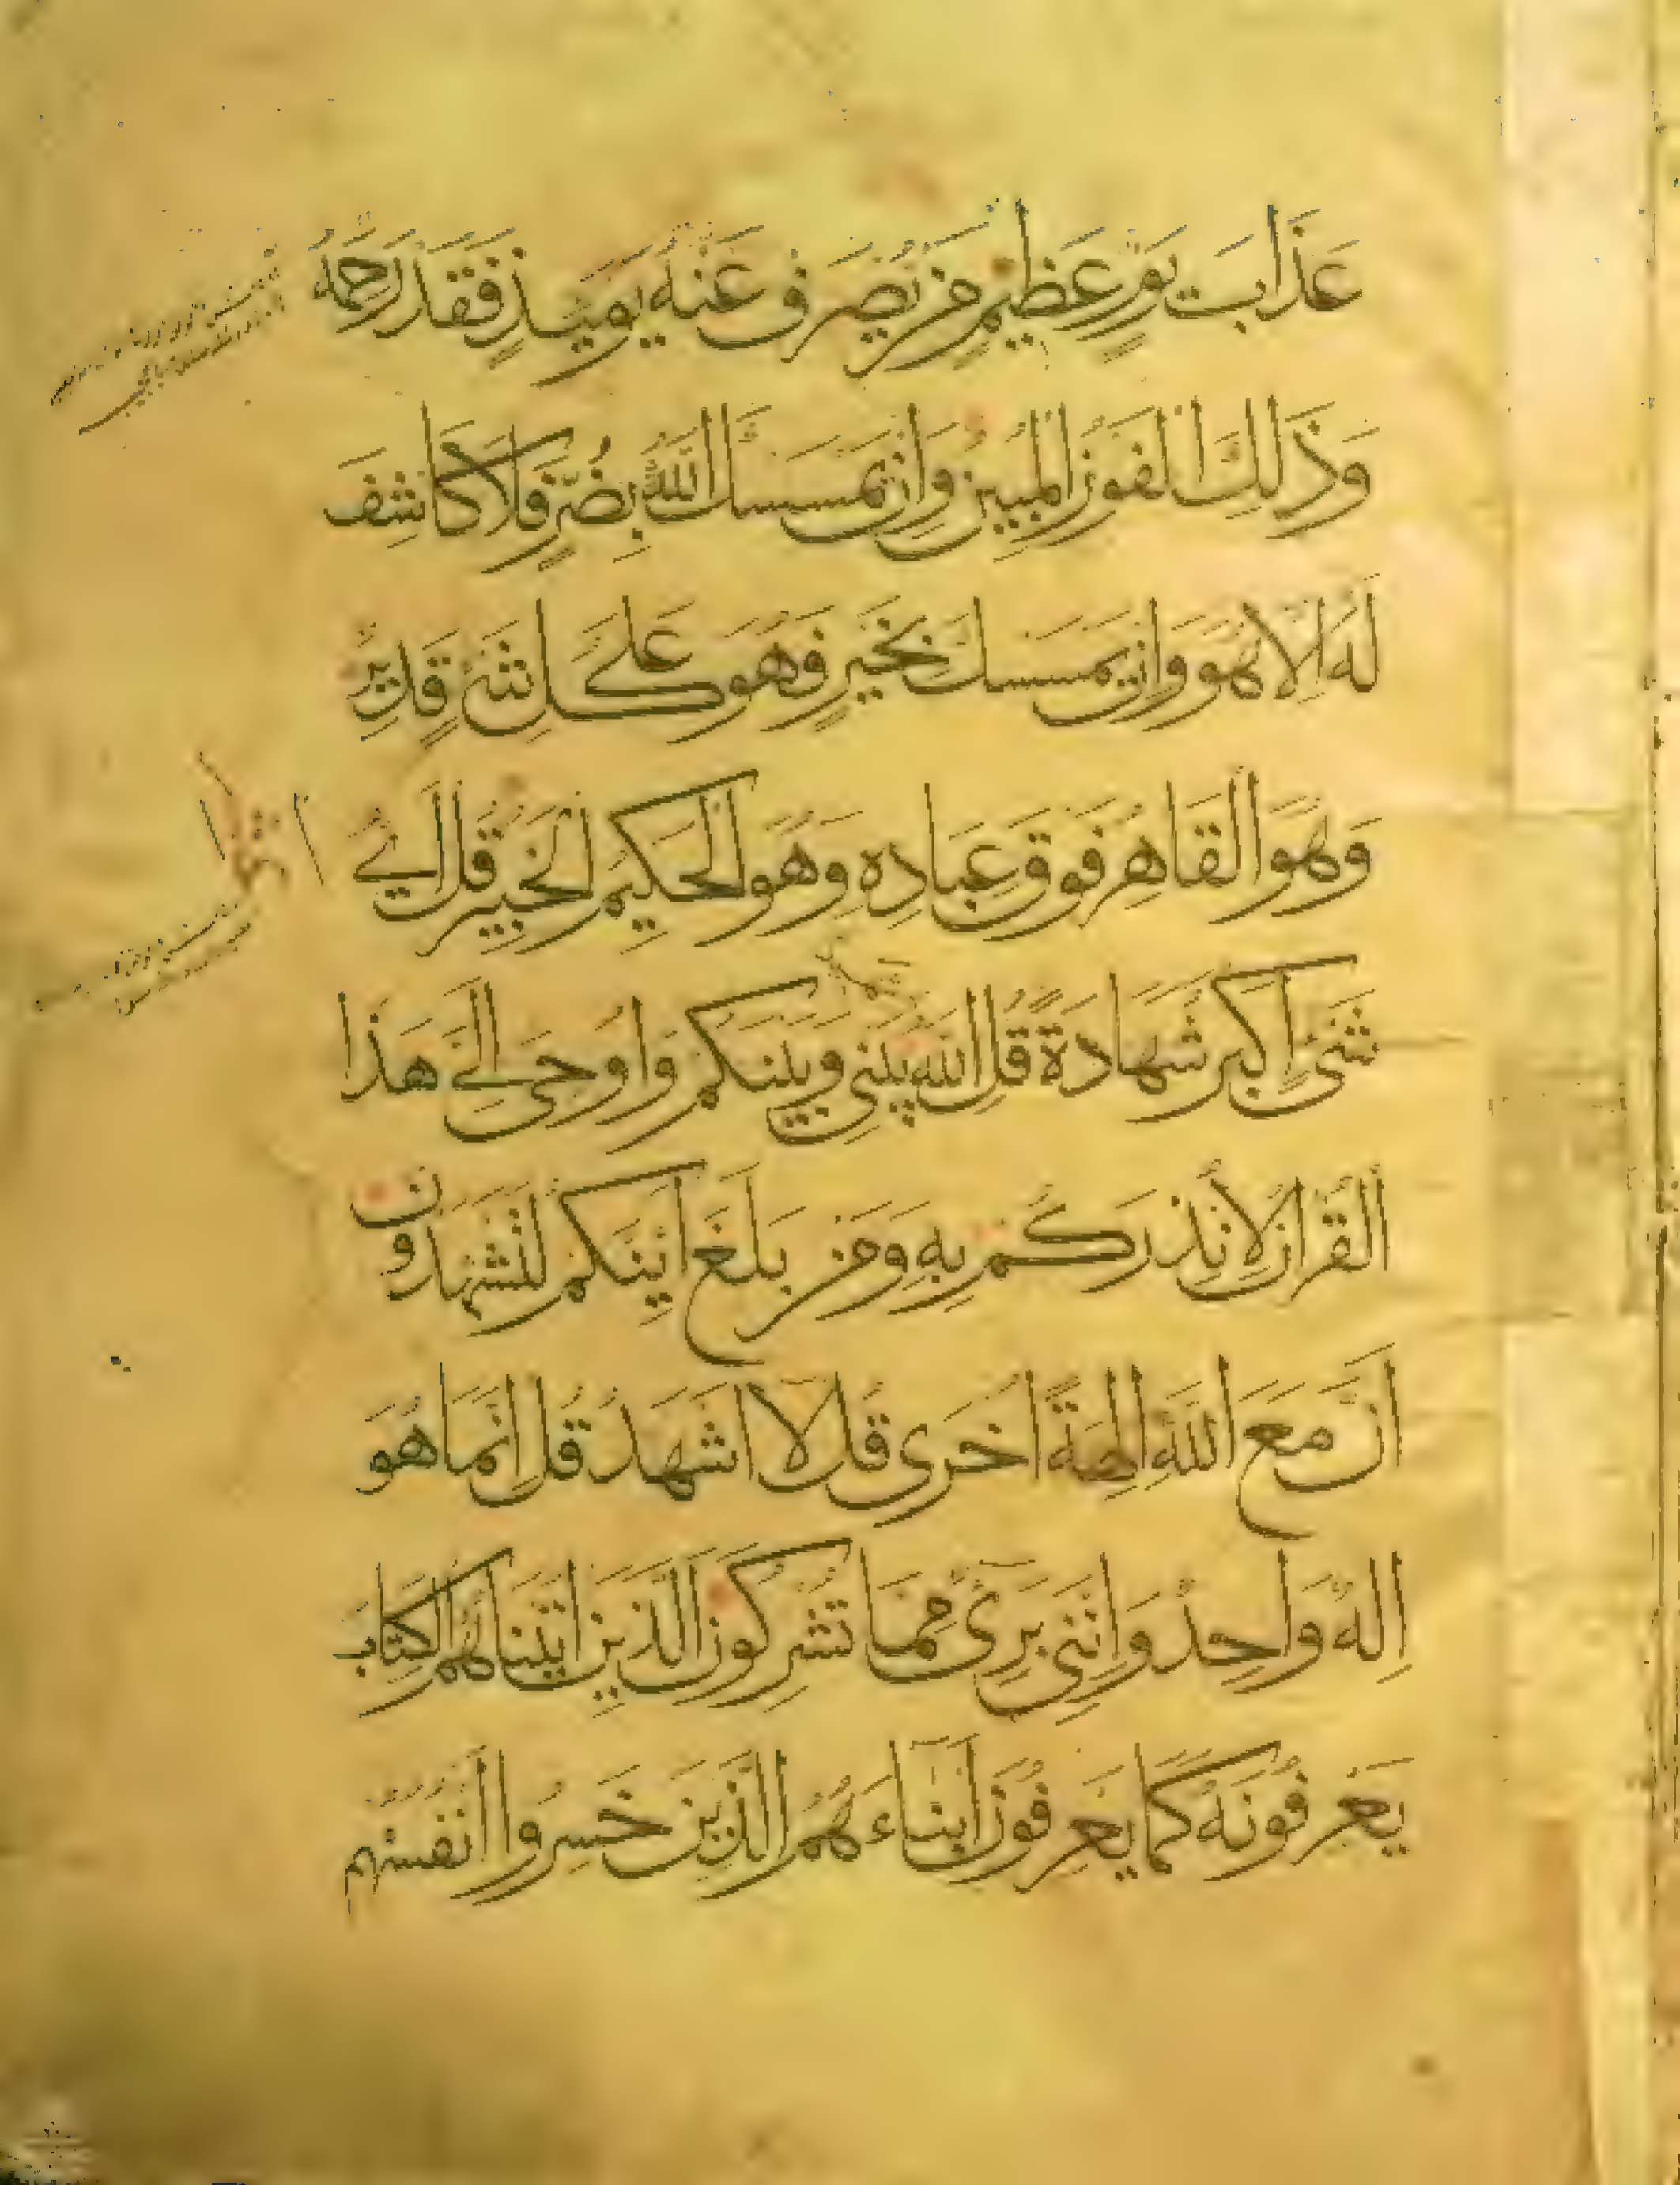 عَذَابَ يَوْمٍ عَظِيمٍ مَنْ يُصْرَفْ عَنْهُ يَوْمَئِذٍ فَقَدْ رَحِمَهُ
وَذَلِكَ الْفَوْزُ الْمُبِينُ وَإِنْ يَمْسَسْكَ اللَّهُ بِضُرٍّ فَلَا كَاشِفَ
لَهُ إِلَّا هُوَ وَإِنْ يَمْسَسْكَ بِخَيْرٍ فَهُوَ عَلَى كُلِّ شَيْءٍ قَدِيرٌ
وَهُوَ الْقَاهِرُ فَوْقَ عِبَادِهِ وَهُوَ الْحَكِيمُ الْخَبِيرُ قُلْ أَيُّ
شَيْءٍ أَكْبَرُ شَهَادَةً قُلِ اللَّهُ بَيْنِي وَبَيْنَكُمْ وَأُوحِيَ إِلَيَّ هَذَا
الْقُرْآنُ لِأُنْذِرَكُمْ بِهِ وَمَنْ بَلَغَ أَئِنَّكُمْ لَتَشْهَدُونَ
أَنَّ مَعَ اللَّهِ آلِهَةً أُخْرَى قُلْ لَا أَشْهَدُ قُلْ إِنَّمَا هُوَ
إِلَهٌ وَاحِدٌ وَإِنَّنِي بَرِيءٌ مِمَّا تُشْرِكُونَ الَّذِينَ آتَيْنَاهُمُ الْكِتَابَ
يَعْرِفُونَهُ كَمَا يَعْرِفُونَ أَبْنَاءَهُمُ الَّذِينَ خَسِرُوا أَنْفُسَهُمْ